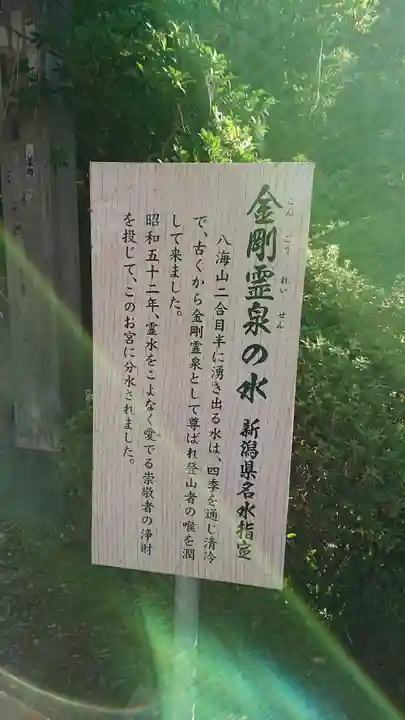 金剛霊泉の水
こんごうれいせん
新潟県名水指定
八海山二合目半に湧き出る水は、四季を通じ清冷
で、古くから金剛霊泉として尊ばれ登山者の喉を潤
して来ました。
昭和五十二年、霊水をこよなく愛でる崇敬者の浄財
を投じて、このお宮に分水されました。